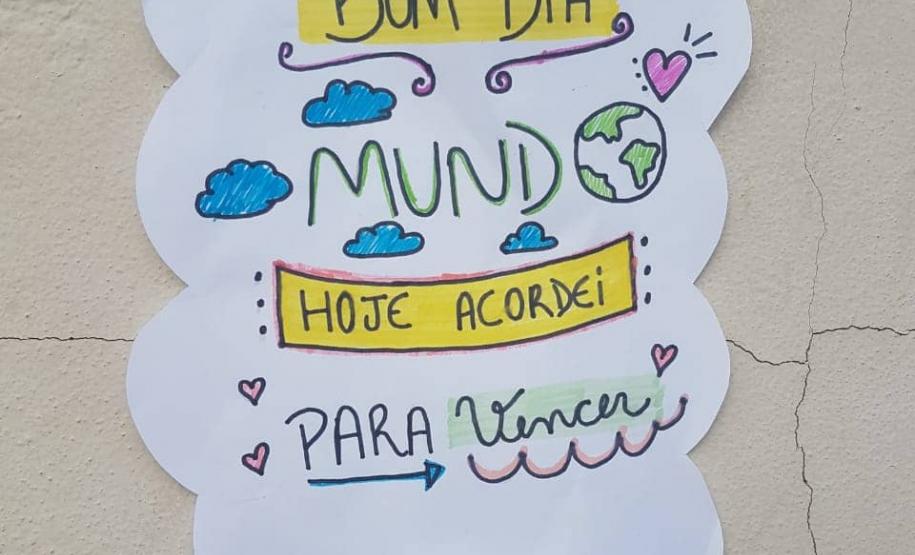 BOM DIA
MUNDO
HOJE ACORDEi
PARA Vencer